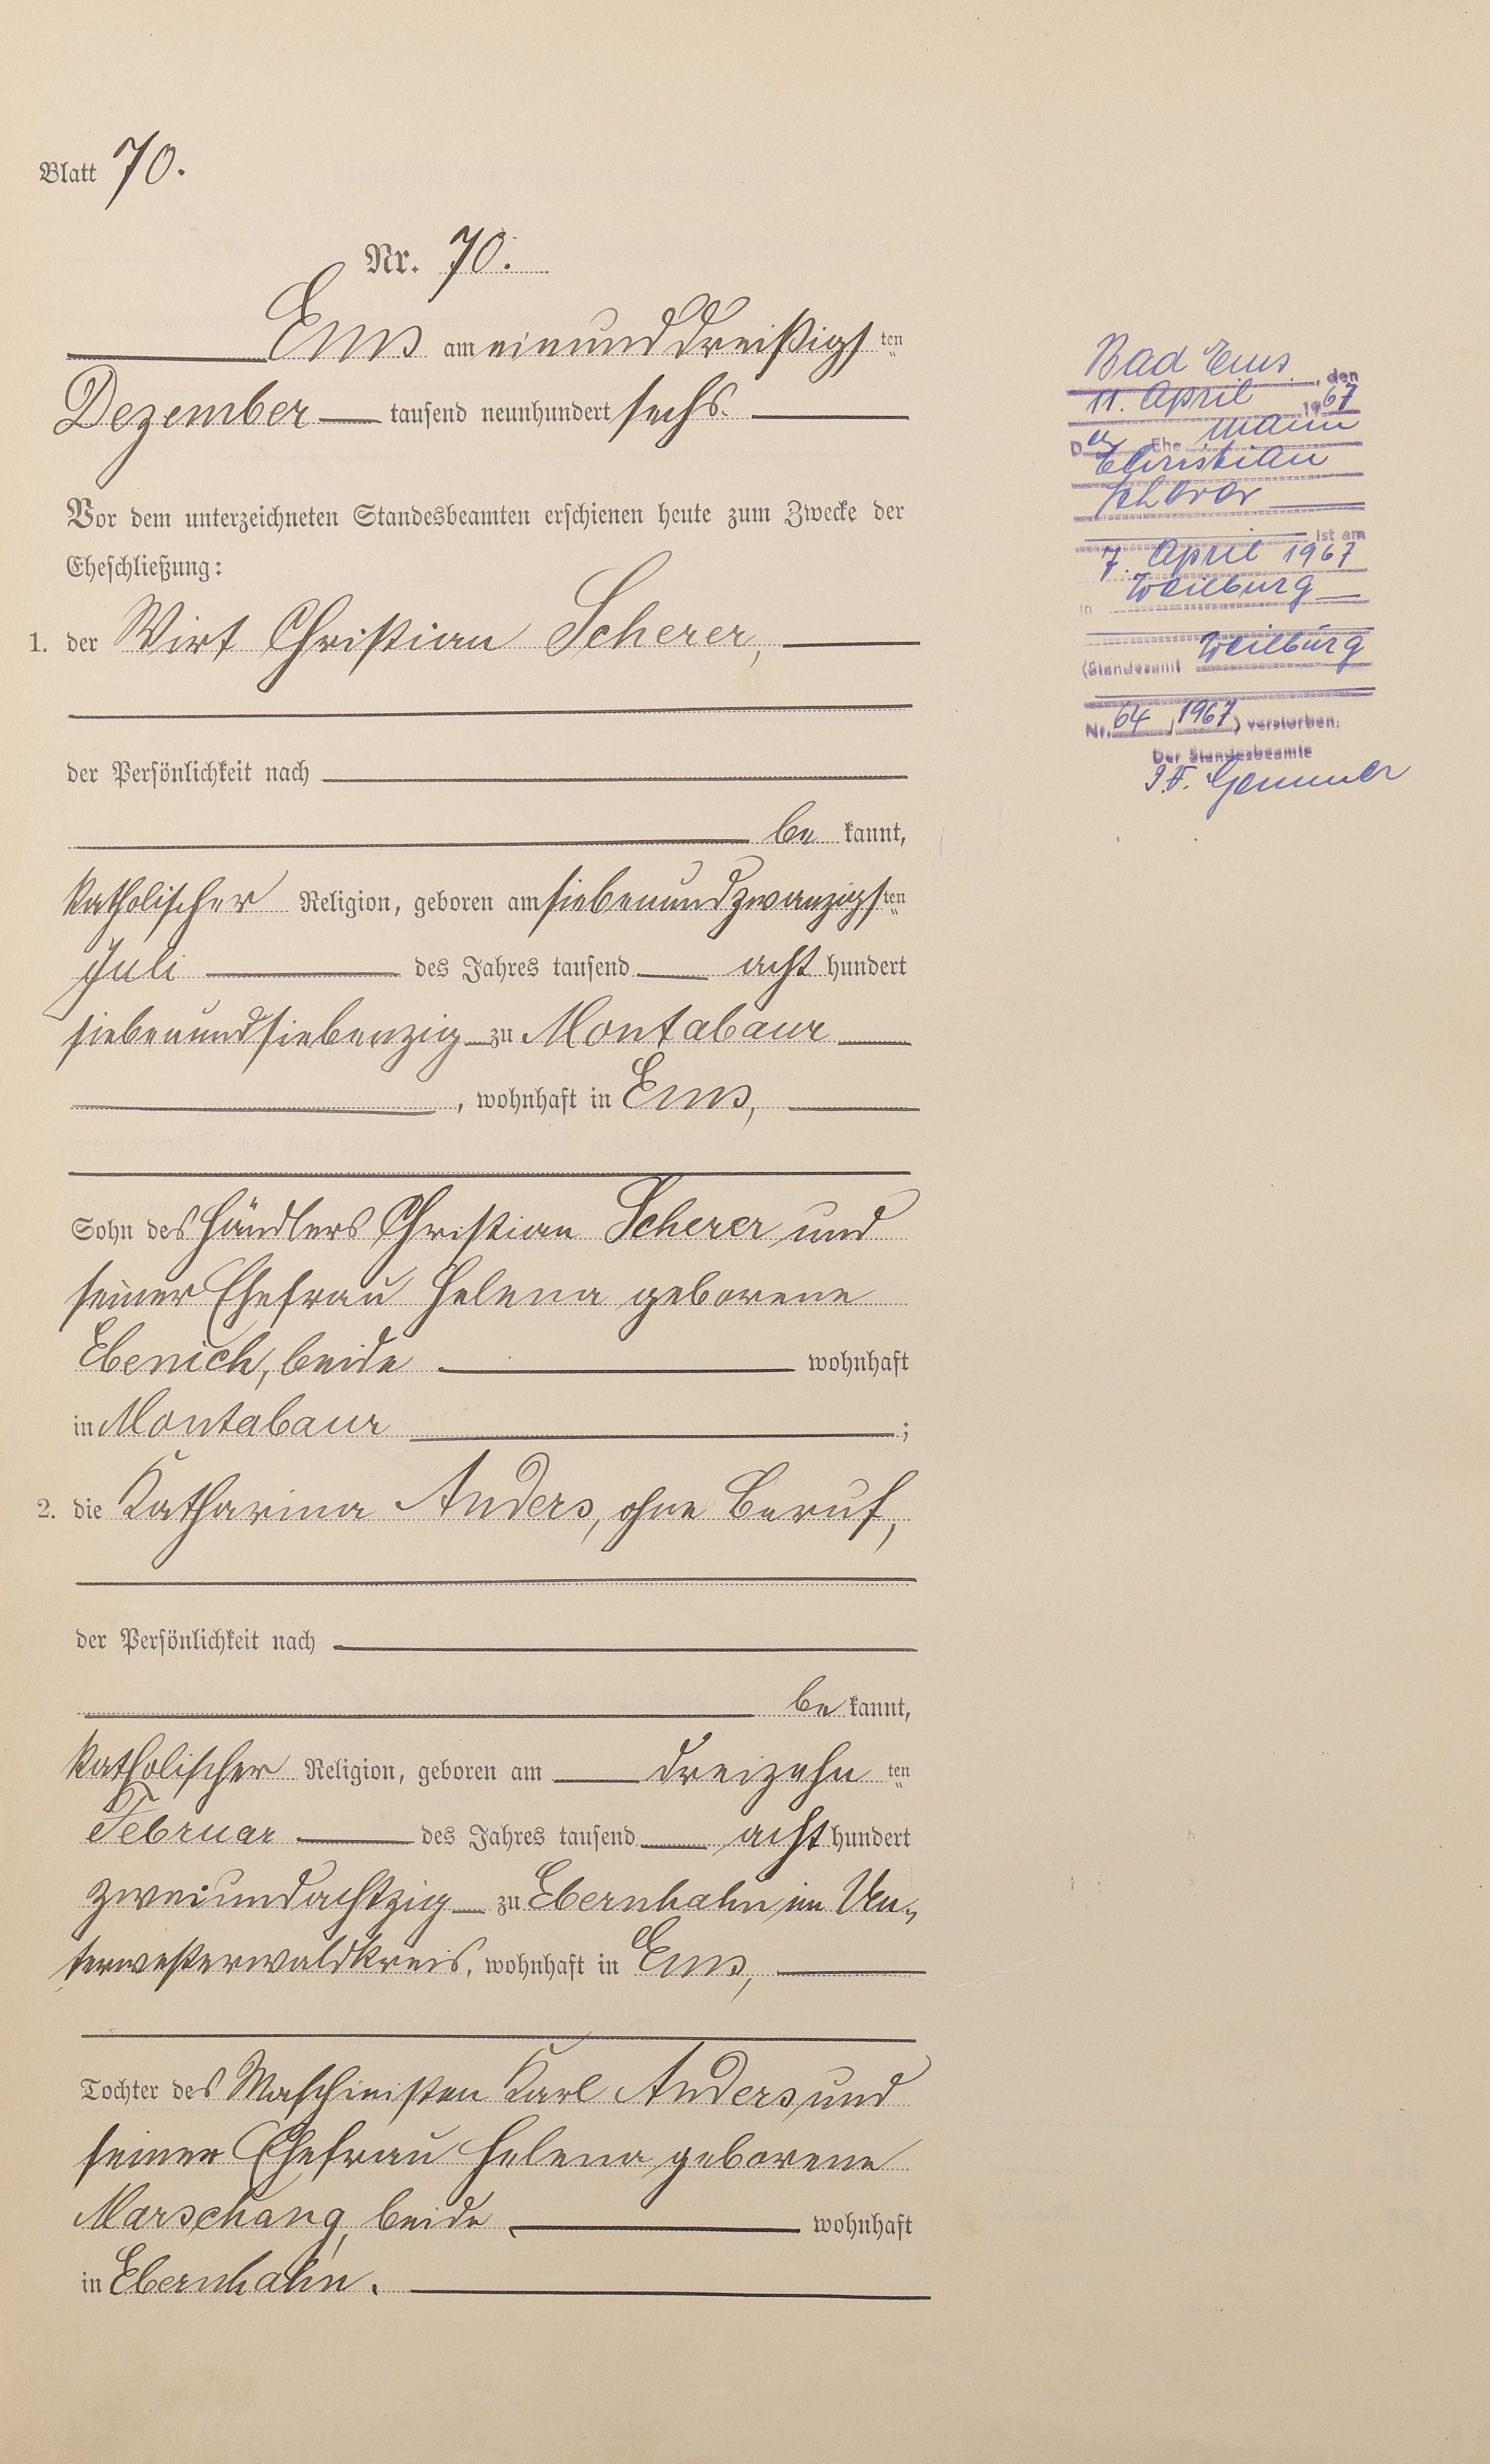 Blatt 70.
Nr. 70.
Ems am einunddreißigsten
Dezember tausend neunhundert sechs.
Vor dem unterzeichneten Standesbeamten erschienen heute zum Zwecke der
Eheschließung:
1. der Wirt Christian Scherer,
der Persönlichkeit nach
be kannt,
katholischer Religion, geboren am siebenundzwanzigsten
Juli des Jahres tausend acht hundert
siebenundsiebenzig zu Montabaur
, wohnhaft in Ems,
Sohn des Händlers Christian Scherer und
seiner Ehefrau Helena geborene
Ebenich, beide wohnhaft
in Montabaur ;
2. die Katharina Anders, ohne Beruf,
der Persönlichkeit nach
be kannt,
katholischer Religion, geboren am dreizehn ten
Februar des Jahres tausend acht hundert
zweiundachtzig zu Ebernhahn im Un-
terwesterwaldkreis, wohnhaft in Ems,
Tochter des Maschinisten Karl Anders und
seiner Ehefrau Helena geborene
Marschang, beide wohnhaft
in Ebernhahn.
Bad Ems, den
11. April 1967
Der Ehe mann
Christian
Scherer
ist am
7. April 1967
in Weilburg
(Standesamt Weilburg
Nr. 64 / 1967) verstorben.
Der Standesbeamte